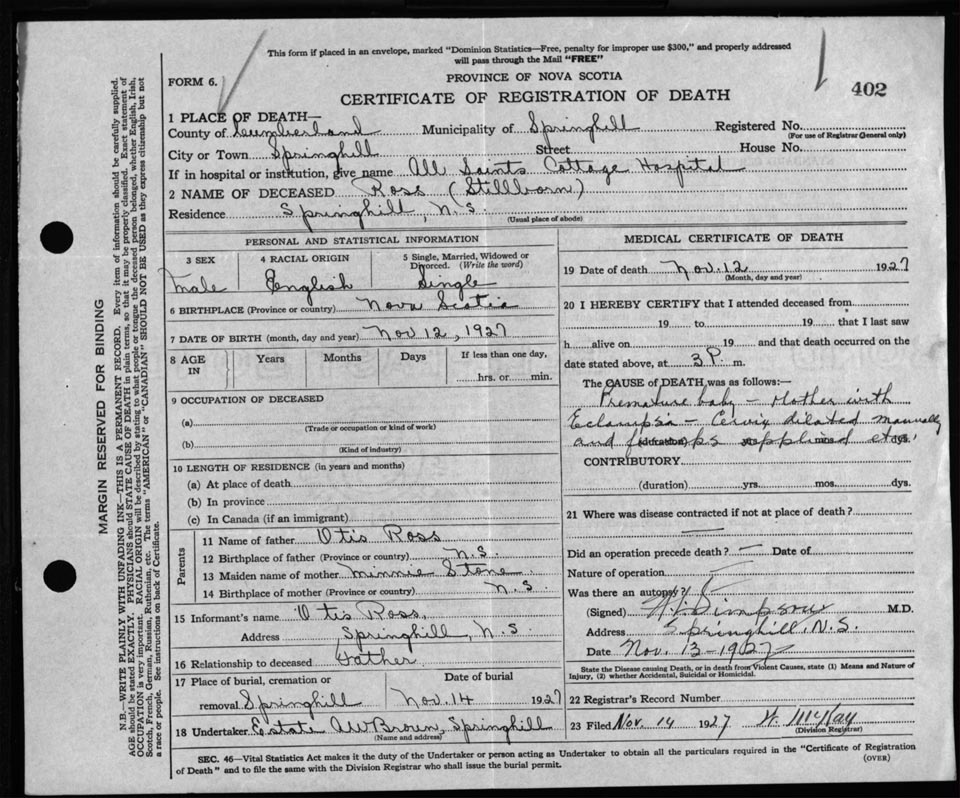 This form if placed in an envelope, marked "Dominion Statistics—Free, penalty for improper use $300," and properly addressed
will pass through the Mail "FREE"
FORM 6.
PROVINCE OF NOVA SCOTIA
CERTIFICATE OF REGISTRATION OF DEATH
402
1 PLACE OF DEATH—
County of Cumberland Municipality of Springhill Registered No.
(For use of Registrar General only)
City or Town Springhill Street House No.
If in hospital or institution, give name All Saints Cottage Hospital
2 NAME OF DECEASED Ross (Stillborn)
Residence Springhill, N.S.
(Usual place of abode)
PERSONAL AND STATISTICAL INFORMATION
3 SEX 4 RACIAL ORIGIN 5 Single, Married, Widowed or
Divorced. (Write the word)
male English Single
6 BIRTHPLACE (Province or country) Nova Scotia
7 DATE OF BIRTH (month, day and year) Nov 12, 1927
8 AGE IN Years Months Days If less than one day,
hrs. or min.
9 OCCUPATION OF DECEASED
(a)
(Trade or occupation or kind of work)
(b)
(Kind of industry)
10 LENGTH OF RESIDENCE (in years and months)
(a) At place of death
(b) In province
(c) In Canada (if an immigrant)
Parents
11 Name of father Otis Ross
12 Birthplace of father (Province or country) N.S.
13 Maiden name of mother Minnie Stone
14 Birthplace of mother (Province or country) N.S
15 Informant's name Otis Ross,
Address Springhill, N.S.
16 Relationship to deceased Father
17 Place of burial, cremation or Date of burial
removal Springhill Nov. 14 1927
18 Undertaker Estate AW Brown, Springhill
(Name and address)
MEDICAL CERTIFICATE OF DEATH
19 Date of death Nov. 12 1927
(Month, day and year)
20 I HEREBY CERTIFY that I attended deceased from
19 to 19 that I last saw
h alive on 19 and that death occurred on the
date stated above, at 3 P. m.
The CAUSE of DEATH was as follows:—
Premature baby - Mother with
Eclampsia - Cervix dilated manually
and forceps applied etc.
(duration) yrs. mos. dys.
CONTRIBUTORY
(duration) yrs. mos. dys.
21 Where was disease contracted if not at place of death?
Did an operation precede death? — Date of
Nature of operation
Was there an autopsy?
(Signed) Simpson M.D.
Address Springhill, N.S.
Date Nov. 13-1927
State the Disease causing Death, or in death from Violent Causes, state (1) Means and Nature of
Injury, (2) whether Accidental, Suicidal or Homicidal.
22 Registrar's Record Number
23 Filed Nov. 14 1927
(Division Registrar)
SEC. 46—Vital Statistics Act makes it the duty of the Undertaker or person acting as Undertaker to obtain all the particulars required in the "Certificate of Registration
of Death" and to file the same with the Division Registrar who shall issue the burial permit.
(OVER)
MARGIN RESERVED FOR BINDING
N.B.—WRITE PLAINLY WITH UNFADING INK—THIS IS A PERMANENT RECORD. Every item of information should be carefully supplied.
AGE should be stated EXACTLY. PHYSICIANS should STATE CAUSE OF DEATH in plain terms, so that it may be properly classified. Exact statement of
OCCUPATION is very important. RACIAL ORIGIN will be described by stating to what people or tongue the deceased person belonged, whether English, Irish,
Scotch, French, German, Russian, Ruthenian, etc. The terms "AMERICAN" or "CANADIAN" SHOULD NOT BE USED as they express citizenship but not
a race or people. See instructions on back of Certificate.